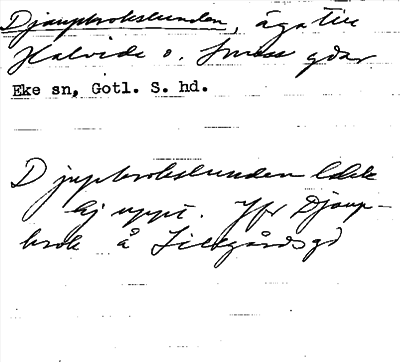 Djaupbrokslunden, äga till
Halvide o. Smiss gdar
Eke sn, Gotl. S. hd.
Djupbrokslunden
Ej uppt. Jfr Djaup-
brok å Lillegårdsgd